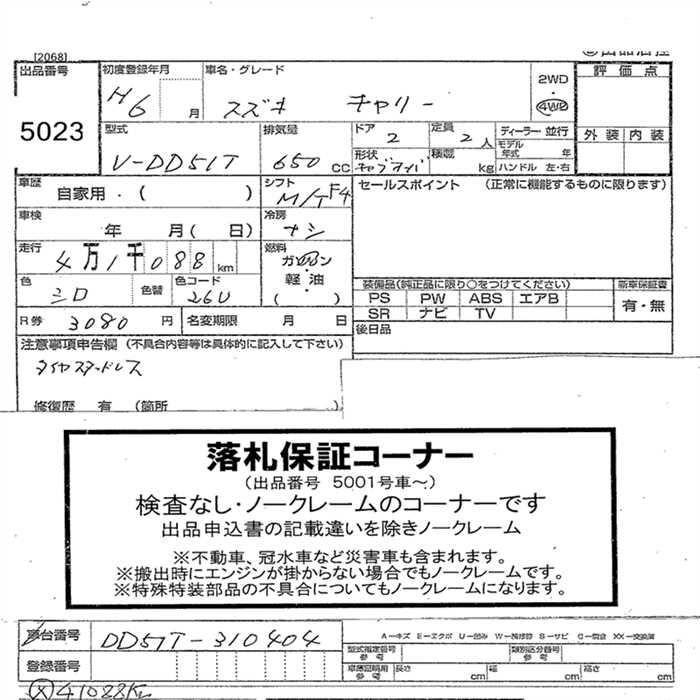 [2068]
出品番号 初度登録年月 車名・グレード 2WD・4WD 評価点
5023 H6 月 スズキ キャリー
外装 内装
型式 排気量 ドア 定員 ディーラー・並行
V-DD51T 650 CC 2 2人 モデル年式 年
形状 積載 kg ハンドル 左・右
キャブライバ
車歴 シフト セールスポイント (正常に機能するものに限ります)
自家用・( ) M/T F4
車検 冷房
年 月( 日) ナシ
走行 燃料
4万1千088km ガソリン・軽油・( )
色 色替 色コード 装備品(純正品に限り○をつけてください) 新車保証書
シロ 26U PS PW ABS エアB 有・無
SR ナビ TV
R券 3080円 名変期限 月 日 後日品
注意事項申告欄 (不具合内容等は具体的に記入して下さい)
タイヤスタッドレス
修復歴 有 (箇所 )
落札保証コーナー
(出品番号 5001号車~)
検査なし・ノークレームのコーナーです
出品申込書の記載違いを除きノークレーム
※不動車、冠水車など災害車も含まれます。
※搬出時にエンジンが掛からない場合でもノークレームです。
※特殊特装部品の不具合についてもノークレームになります。
車台番号 DD51T-310404 A-キズ E-エクボ U-凹み W-補修跡 S-サビ C-腐食 XX-交換済
型式指定番号 参考 類別区分番号 参考
登録番号 車庫証明用 参考 長さ cm 幅 cm 高さ cm
41088Km